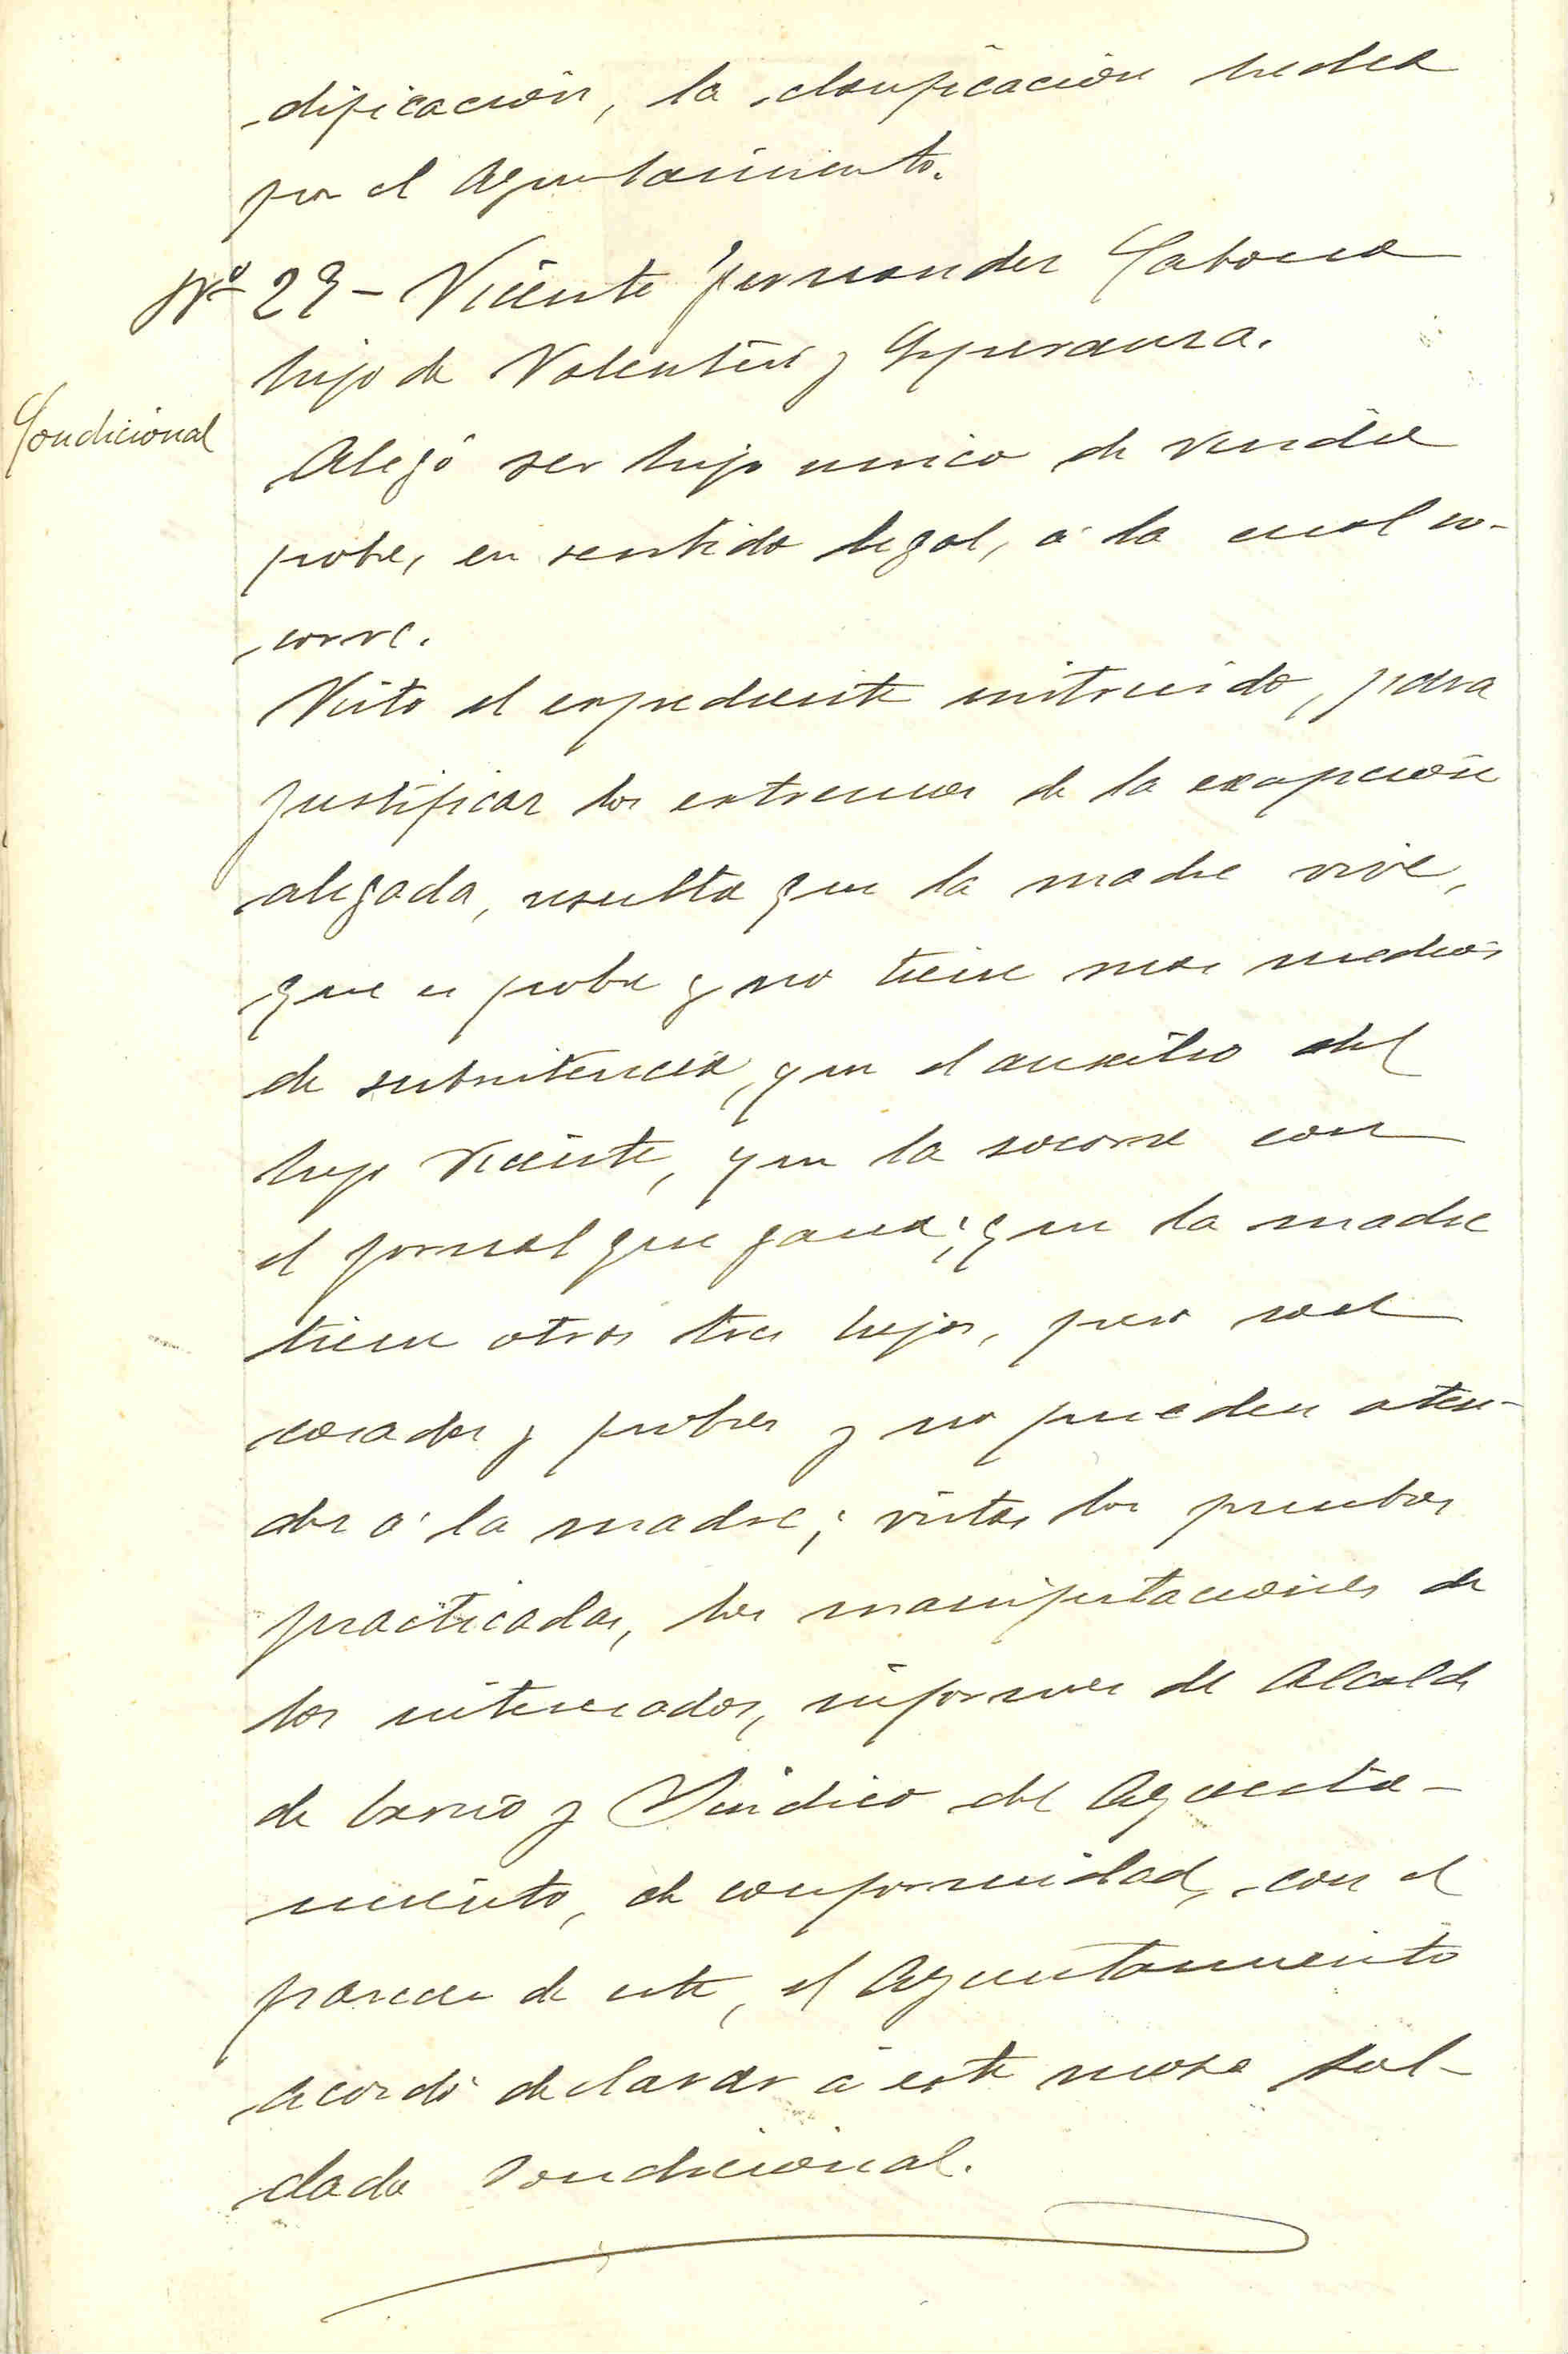 dificación, la clasificación hecha
por el Ayuntamiento.
Nº 29 - Vicente Fernandez Cabona
hijo de Valentin y Esperanza.
Condicional
Alegó ser hijo unico de viuda
pobre, en sentido legal, á la cual so-
corre.
Visto el expediente instruido, para
justificar los extremos de la excepción
alegada, resulta que la madre vive,
que es pobre y no tiene mas medios
de subsistencia, que el auxilio del
hijo Vicente, que la socorre con
el jornal que gana; que la madre
tiene otros tres hijos, pero son
casados y pobres y no pueden aten-
der á la madre; vistas las pruebas
practicadas, las manifestaciones de
los interesados, informes del Alcalde
de barrio y Sindico del Ayunta-
miento, de conformidad, con el
parecer de este, el Ayuntamiento
acordó declarar á este mozo sol-
dado condicional.